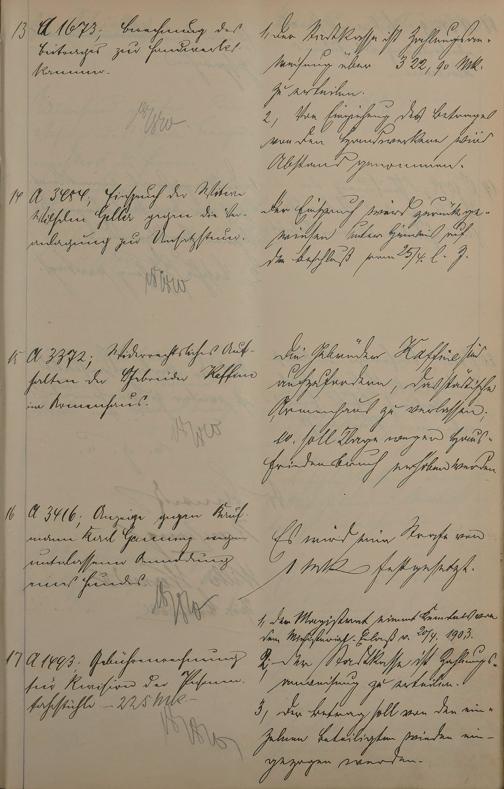 13 A 1673; Berechnung des
Beitrages zur Handwerks
kammer.
1, Der Stadtkasse ist Zahlungsan-
weisung über 322,90 Mk.
zu erteilen.
2, Von Einziehung des Betrages
von den Handwerkern wird
Abstand genommen.
14 A 3484, Einspruch der Witwe
Wilhelm Geller gegen die Ver-
anlagung zur Umsatzsteuer.
Der Einspruch wird zurückge-
wiesen unter Hinweis auf
den Beschluß vom 25/4. l. J.
15 A 3372; Widerrechtliches Auf-
halten der Gebrüder Kaffine
im Armenhaus.
Die Gebrüder Kaffine sind
aufzufordern, das städtische
Armenhaus zu verlassen.
ev. soll Klage wegen Haus-
friedensbruch erhoben werden
16 A 3416; Anzeige gegen Kauf-
mann Karl wegen
unterlassener Anmeldung
eines Hundes
Es wird eine Strafe von
1 Mk festgesetzt.
17 A 1493; Gebührenrechnung
für Revision der
fahrstühle – 225 Mk –
1, Der Magistrat nimmt Kenntnis von
dem Ministerial-Erlaß v. 20/4. 1903.
2, Der Stadtkasse ist Zahlungs-
anweisung zu erteilen.
3, Der Betrag soll von den ein-
zelnen Beteiligten wieder ein-
gezogen werden.